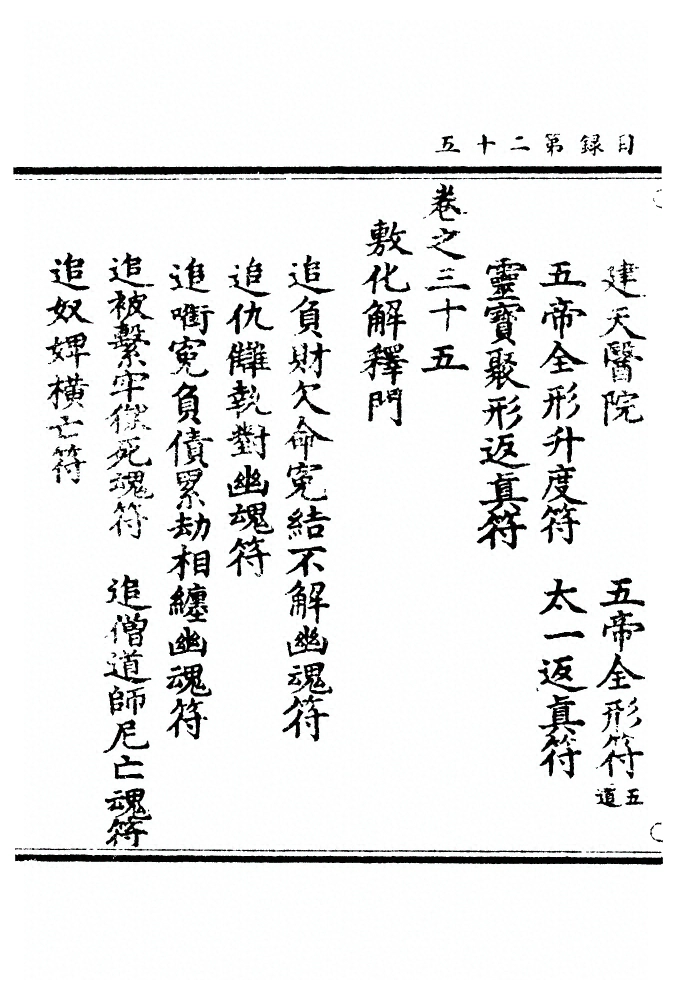 目録第二十五
建天醫院　五帝全形符五道
五帝全形升度符　太一返真符
靈寶聚形返真符
卷之三十五
敷化解釋門
追負財欠命寃結不解幽魂符
追仇讎執對幽魂符
追啣寃負債累劫相纏幽魂符
追被繫牢獄死魂符　追僧道師尼亡魂符
追奴婢橫亡符